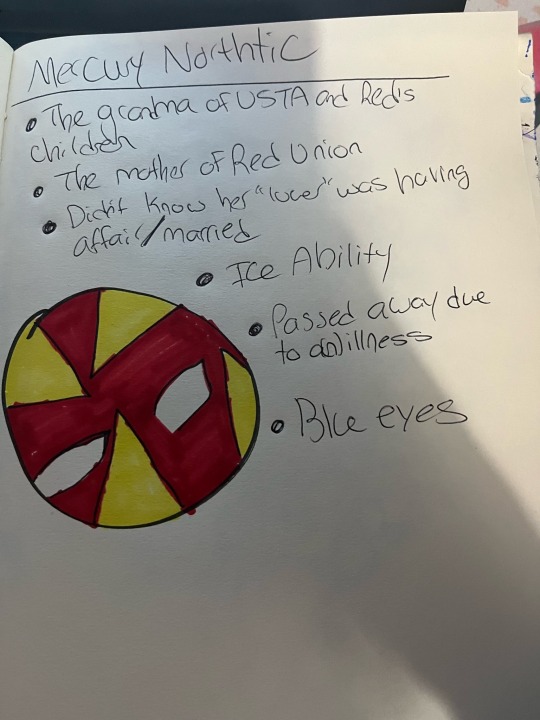 Mercury Northtic
• The grandma of USTA and Red's
children
• The mother of Red Union
• Didn't know her "lover" was having
affair/married
• Ice Ability
• Passed away due
to an illness
• Blue eyes
!